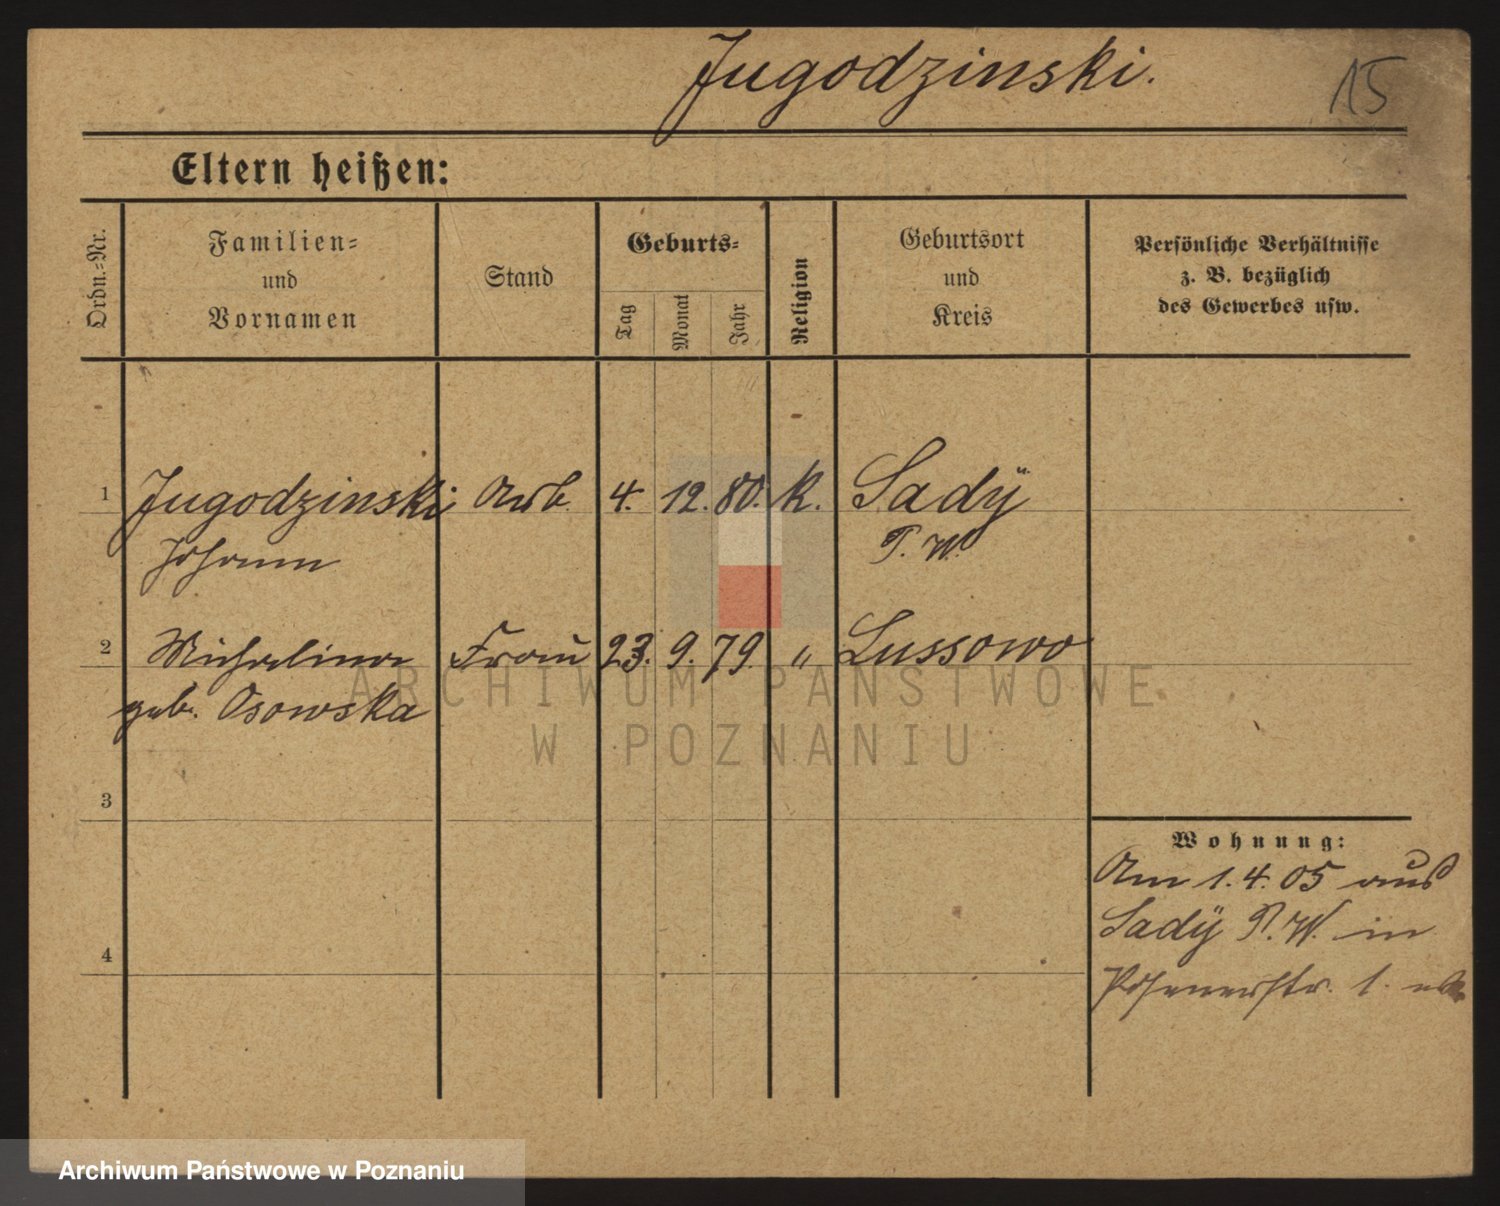 Jugodzinski.
15
Eltern heißen:
Ordn.-Nr.
Familien-
und
Vornamen
Stand
Geburts-
Tag
Monat
Jahr
Religion
Geburtsort
und
Kreis
Persönliche Verhältnisse
z. B. bezüglich
des Gewerbes usw.
1 Jugodzinski Arb. 4. 12. 80. K. Sady
Johann P. W.
2 Michalina Frau 23. 9. 79. " Lussowo
geb. Osowska
3
4
Wohnung:
Am 1. 4. 05 aus
Sady P. W. in
Posenerstr. 1.
ARCHIWUM PAŃSTWOWE
W POZNANIU
Archiwum Państwowe w Poznaniu